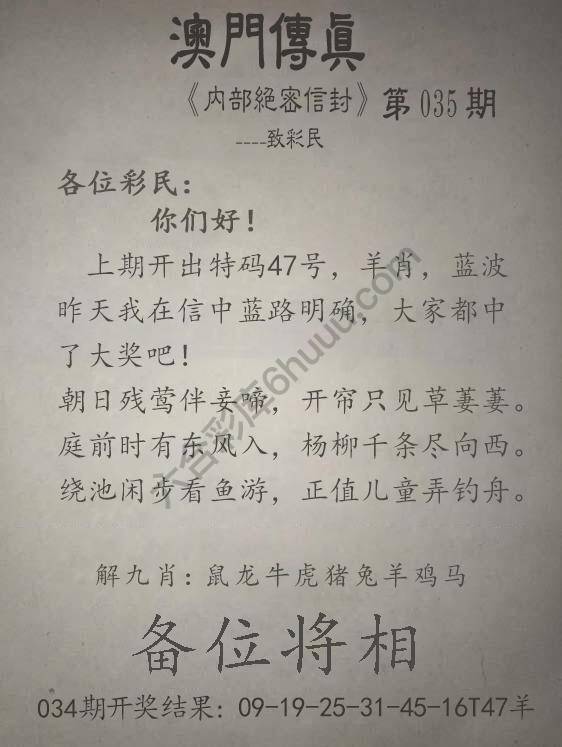 澳門傳真
《内部絕密信封》第035期
----致彩民
各位彩民：
你们好！
上期开出特码47号，羊肖，蓝波
昨天我在信中蓝路明确，大家都中
了大奖吧！
朝日残莺伴妾啼，开帘只见草萋萋。
庭前时有东风入，杨柳千条尽向西。
绕池闲步看鱼游，正值儿童弄钓舟。
解九肖：鼠龙牛虎猪兔羊鸡马
备位将相
034期开奖结果：09-19-25-31-45-16T47羊
六合彩库6huuu.com